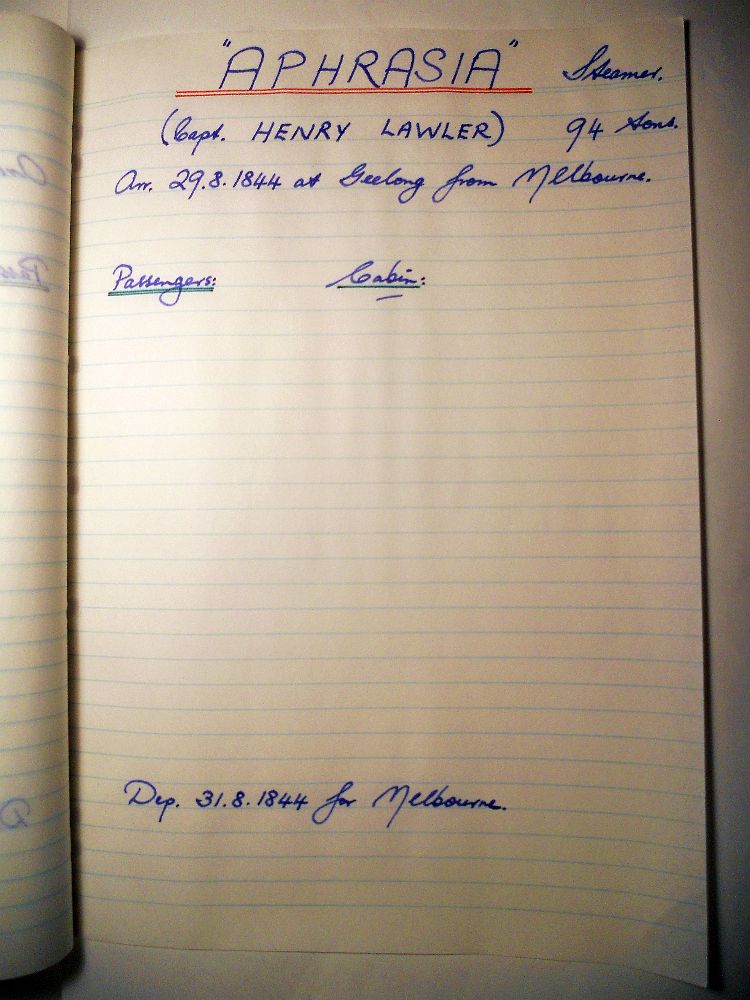 "APHRASIA" Steamer.
(Capt. HENRY LAWLER) 94 tons.
Arr. 29.8.1844 at Geelong from Melbourne.
Passengers: Cabin:
Dep. 31.8.1844 for Melbourne.